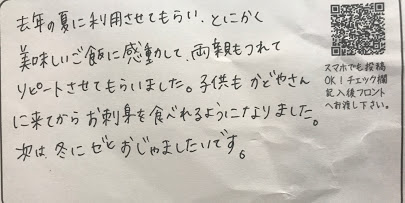 去年の夏に利用させてもらい、とにかく
美味しいご飯に感動して、両親もつれて
リピートさせてもらいました。子供も かどやさん
に来てから お刺身を食べれるようになりました。
次は、冬にゼヒおじゃましたいです。
スマホでも投稿
OK！チェック欄
記入後フロント
へお渡し下さい。